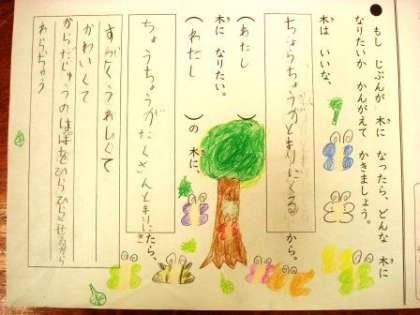 もし じぶんが 木に なったら、どんな 木に
なりたいか かんがえて かきましょう。
木は いいな、
ちょうちょうがとまりにくる
から。
(わたし)
木に なりたい。
(わたし)の 木に、
ちょうちょうがたくさんとまりに
きたら、
すごくうれしくて
かわいくて
からだじゅうのはっぱを ひらひら
わらっちゃう